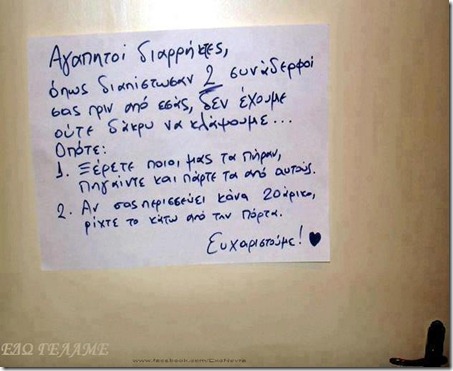 Αγαπητοί διαρρήκτες,
όπως διαπίστωσαν 2 συνάδερφοί
σας πριν από εσάς, δεν έχουμε
ούτε δάκρυ να κλάψουμε...
Οπότε:
1. Ξέρετε ποιοι μας τα πήραν,
πηγαίντε και πάρτε τα από αυτούς.
2. Αν σας περισσεύει κάνα 20άρικο,
ρίχτε το κάτω από την πόρτα.
Ευχαριστούμε! ♥
ΕΔΩ ΓΕΛΑΜΕ